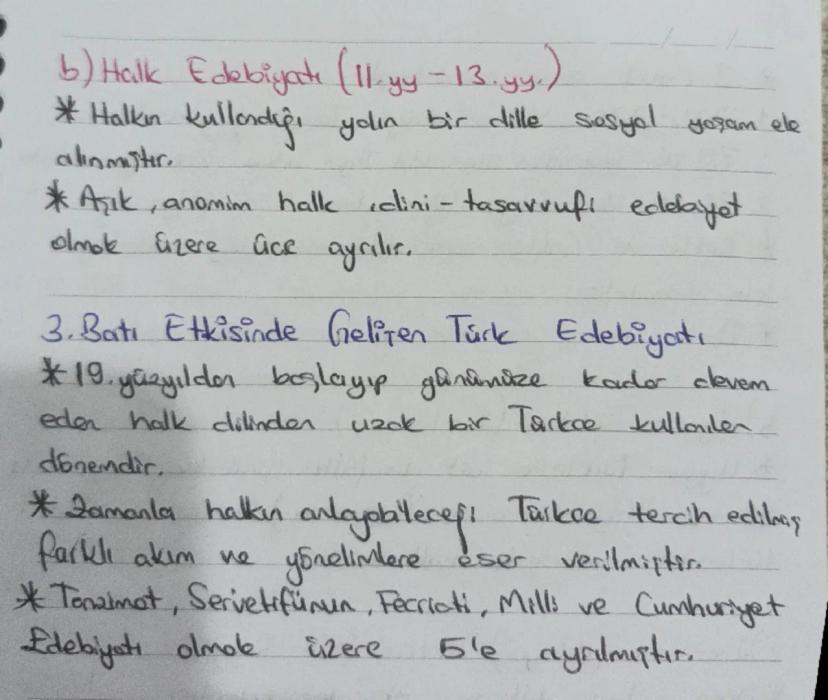 b) Halk Edebiyatı (11.yy - 13.yy.)
* Halkın kullandığı yalın bir dille sosyal yaşam ele
alınmıştır.
* Aşık, anonim halk, dini - tasavvufi edebiyat
olmak üzere üce ayrılır.
3. Batı Etkisinde Gelişen Türk Edebiyatı
* 19. yüzyıldan başlayıp günümüze kadar devam
eden halk dilinden uzak bir Türkce kullanılan
dönemdir.
* Zamanla halkın anlayabileceği Türkce tercih edilmiş
farklı akım ve yönelimlere eser verilmiştir.
* Tanzimat, Servetifünun, Fecriati, Milli ve Cumhuriyet
Edebiyatı olmak üzere 5'e ayrılmıştır.